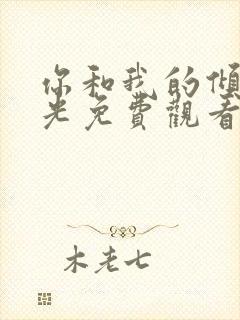 你和我的傾
光免費觀看
木老七